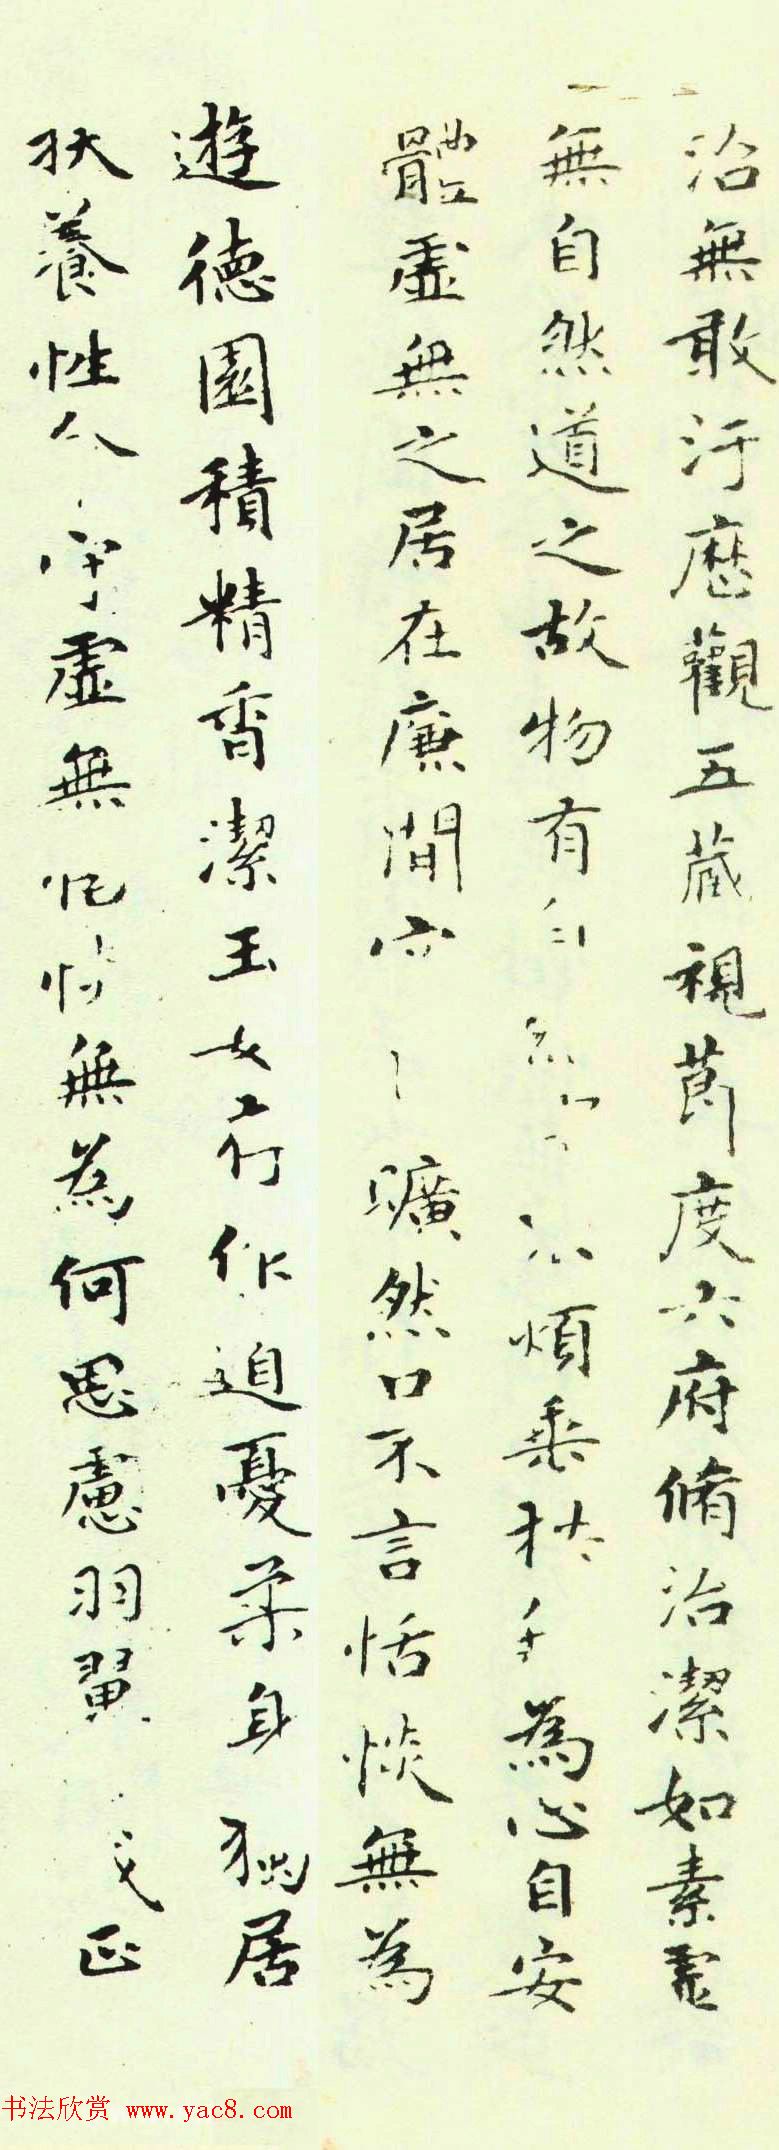 治無敢汙歷觀五藏視節度六府脩治潔如素虛
無自然道之故物有自 煩垂拱 為心自安
體虛無之居在廉間 曠然口不言恬惔無為
遊德園積精香潔玉女存作迫憂柔身獨居
扶養性命守虛無恬惔無為何思慮羽翼 成正
书法欣赏 www.yac8.com